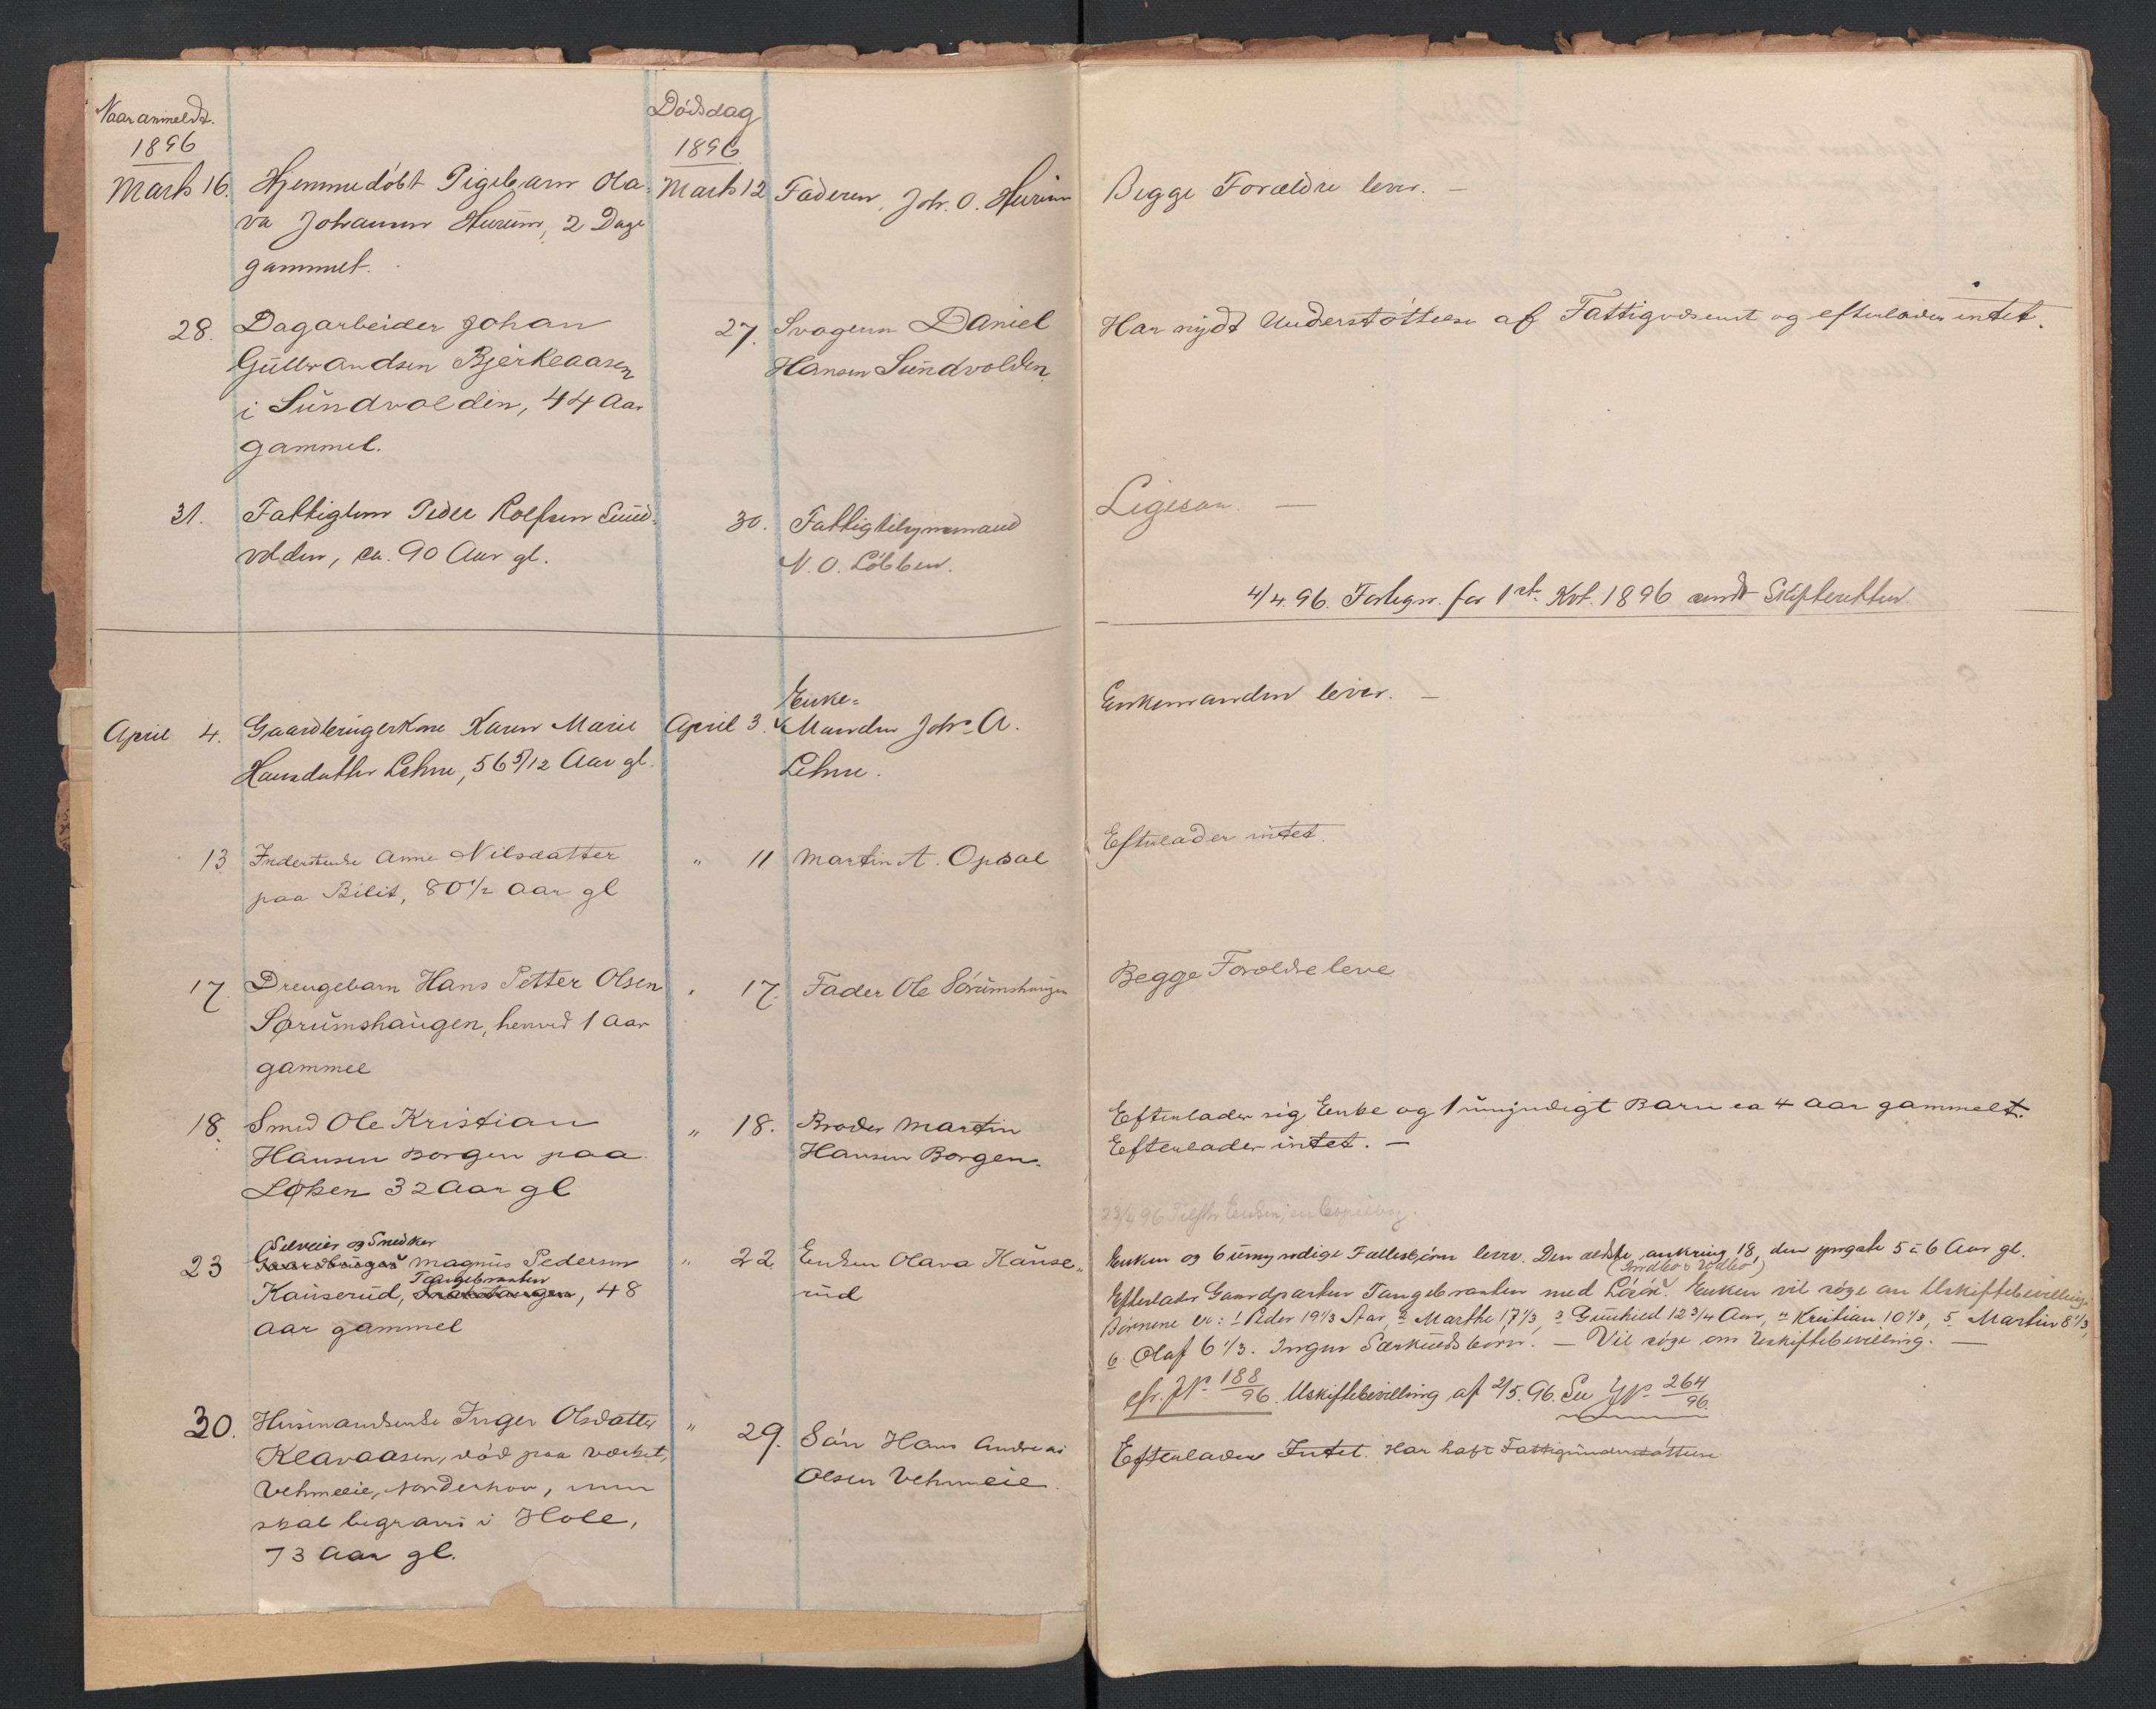 Naar anmeldt.
1896
Dødsdag
1896
Marts 16.
Hjemmedøbt Pigebarn Ola-
va Johanne Hurum, 2 Dage
gammelt.
Marts 12
Faderen, Joh. O. Hurum
Begge Forældre lever. —
28.
Dagarbeider Johan
Gulbrandsen Bjerkeaasen
i Sundvolden, 44 Aar
gammel.
27.
Svogeren Daniel
Hansen Sundvolden
Har nydt Understøttelse af Fattigvæsenet og efterlader intet.
31.
Fattiglem Peder Rolfsen Sund-
volden, ca. 90 Aar gl.
30.
Fattigtilsynsmand
N. O. Løbben.
Ligesaa. —
4/4 96. Fortegn. for 1ste Kvt. 1896 sendt Skifteretten.
April 4.
Gaardbrugerkone Karen Marie
Hansdatter Lehne, 56 5/12 Aar gl.
April 3.
Enke-
Manden Johs. A.
Lehne.
Enkemanden lever. —
13
Inderstenke Anne Nilsdatter
paa Bilit, 80 1/2 Aar gl
" 11
Martin A. Opsal
Efterlader intet.
17.
Drengebarn Hans Petter Olsen
Sørumshaugen, henved 1 Aar
gammel
" 17.
Fader Ole Sørumshaugen
Begge Forældre leve
18.
Smed Ole Kristian
Hansen Borgen paa
Løken 32 Aar gl
" 18.
Broder Martin
Hansen Borgen.
Efterlader sig Enke og 1 umyndigt Barn ca 4 Aar gammelt.
Efterlader intet. —
23/4 96
23
Selveier og Snedker
Gaardbruger Magnus Pedersen
Tangebraaten
Kauserud, , 48
Aar gammel
" 22.
Enken Olava Kause-
rud
Enken og 6 umyndige Fællesbørn lever. Den ældste omkring 18, den yngste 5 à 6 Aar gl.
Efterlader Gaardparten Tangebraaten med Løsøre. Enken vil søge om Uskiftebevilling.
Børnene er: 1 Peder 19 1/3 Aar, 2 Marthe 17 1/3, 3 Gunhild 12 3/4 Aar, 4 Kristian 10 1/3, 5. Martin 8 1/3,
6 Olaf 6 1/3. Ingen Særkuldsbørn. — Vil søge om Uskiftebevilling. —
cfr. JN. 188/96. Uskiftebevilling af 2/5. 96. Se JN. 264/96.
30.
Husmandsenke Inger Olsdatter
Klavaasen, død paa Værket,
Vehmeeie, Norderhov, men
skal begraves i Hole,
73 Aar gl.
" 29.
Søn Hans Andreas
Olsen Vehmeeie.
Efterlader Intet. Har havt Fattigunderstøttelse